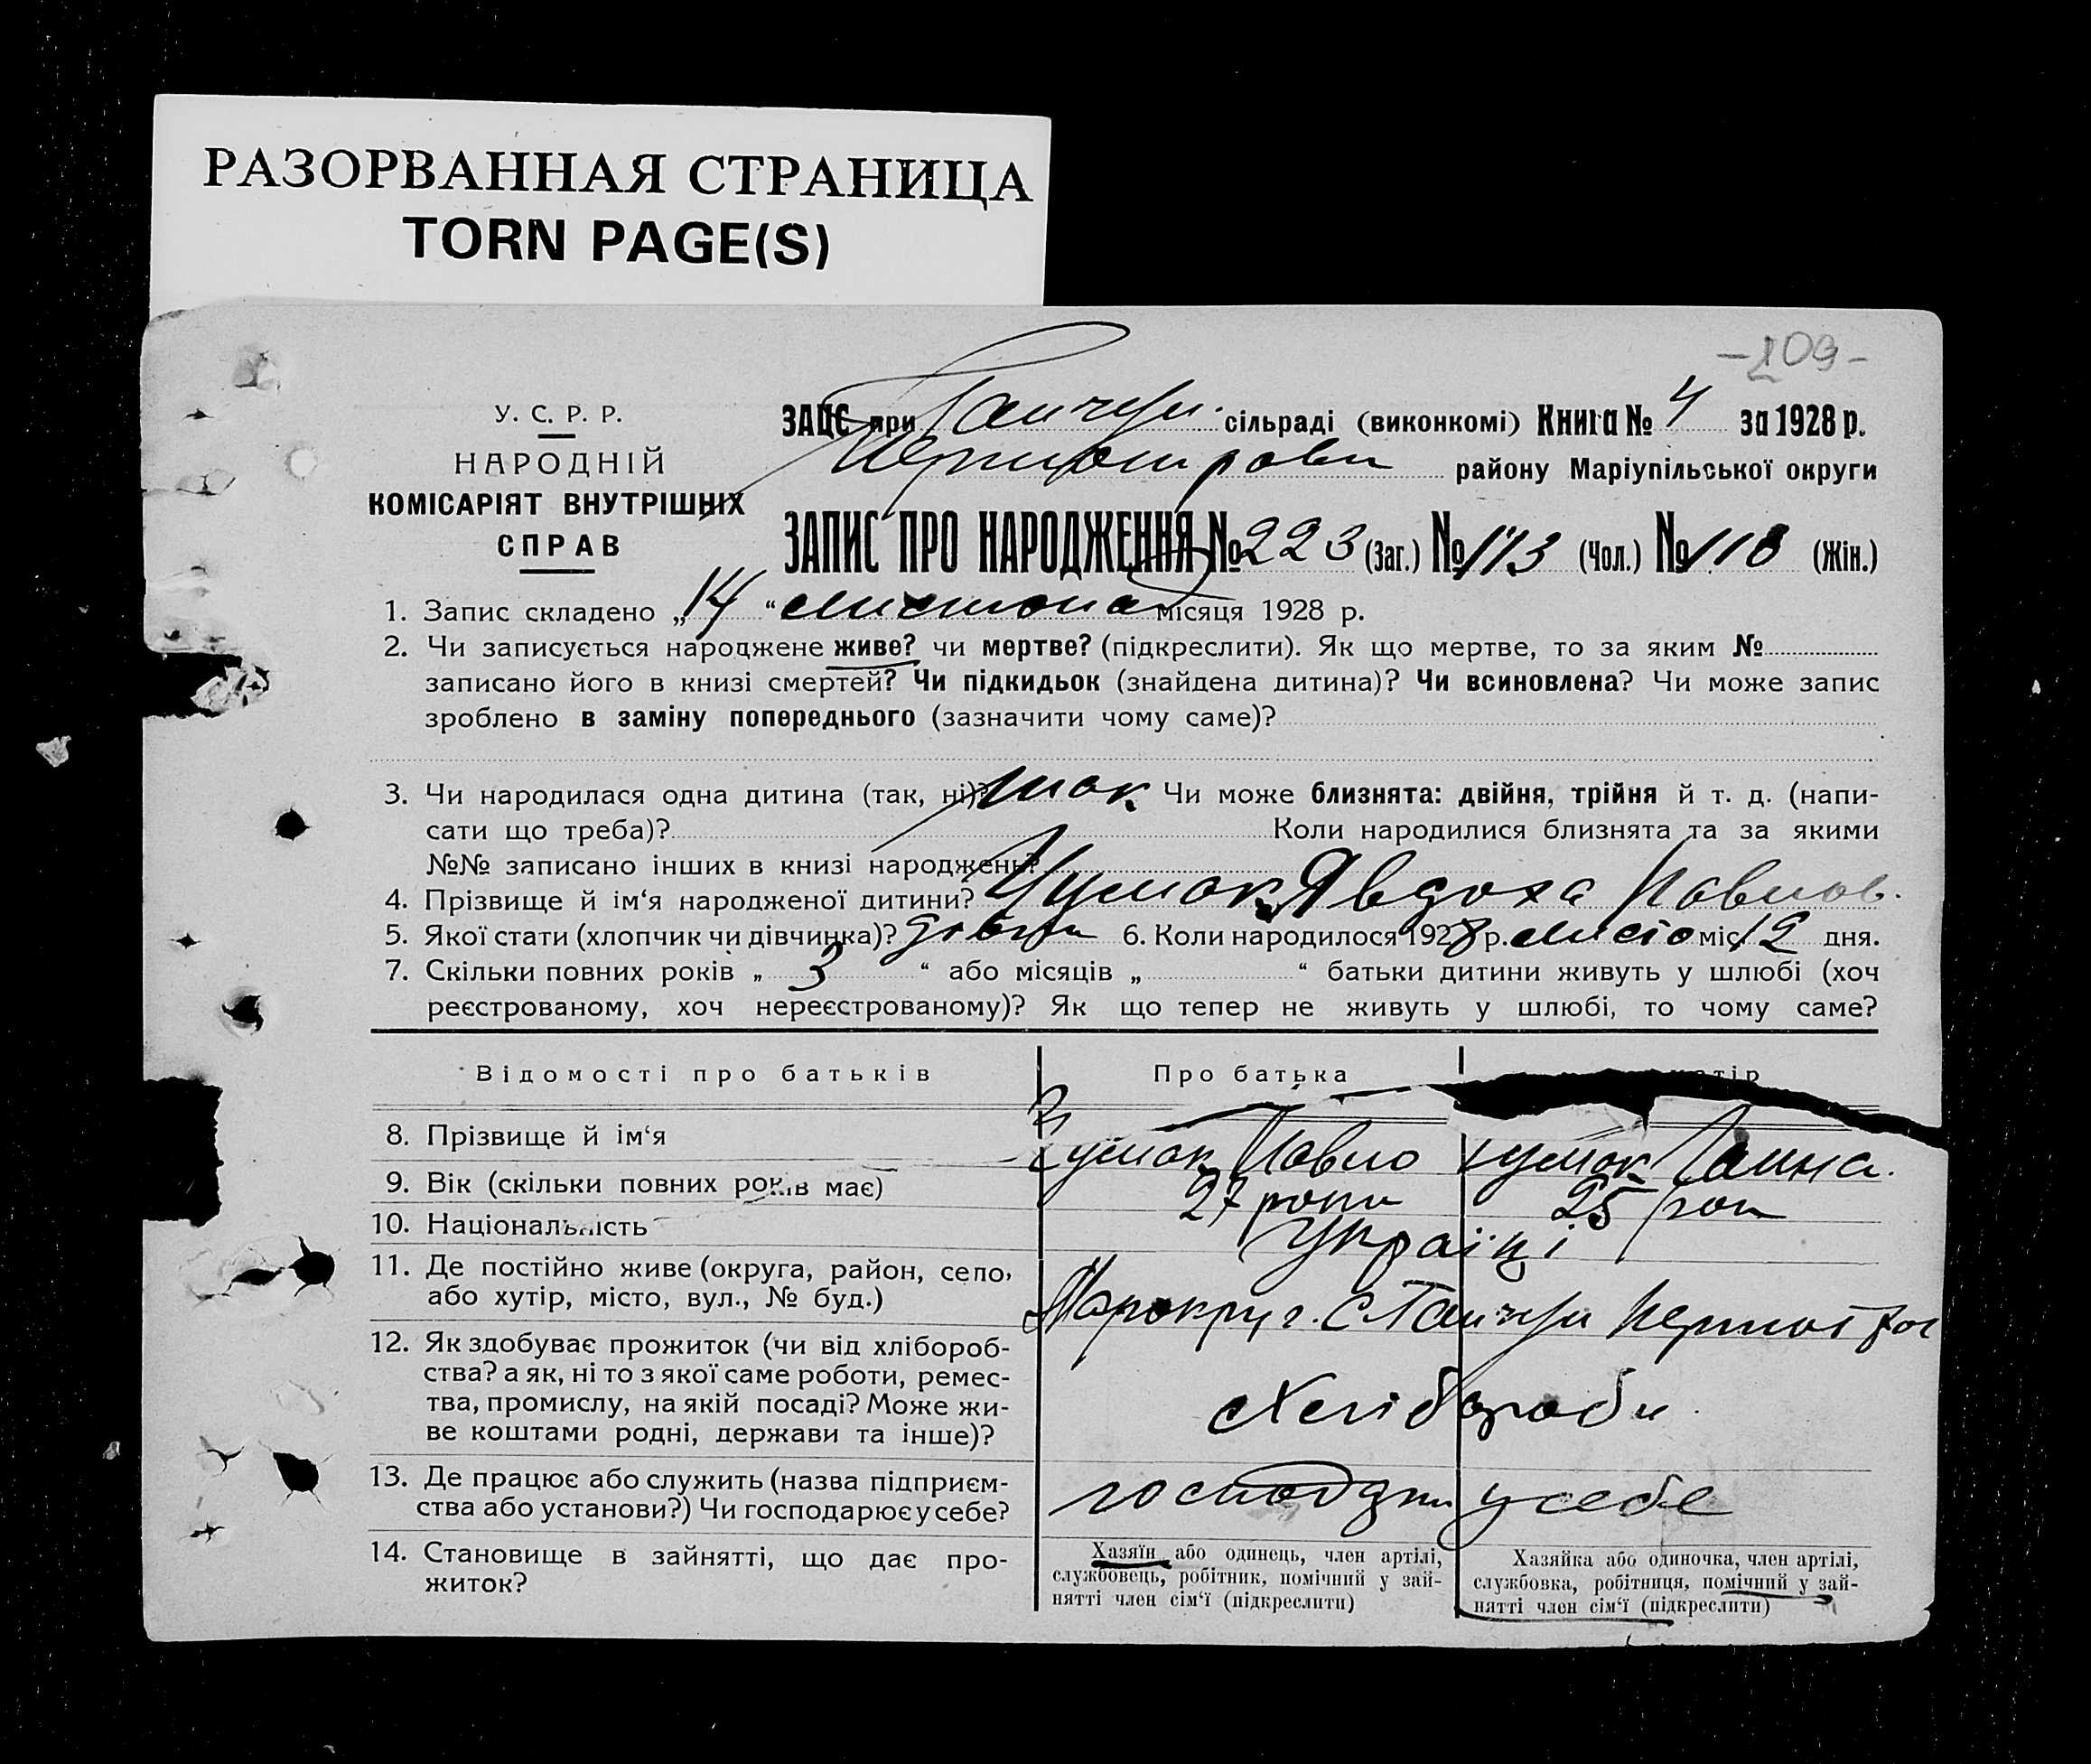 РАЗОРВАННАЯ СТРАНИЦА
TORN PAGE(S)
-109-
У. С. Р. Р.
НАРОДНІЙ
КОМІСАРІЯТ ВНУТРІШНІХ
СПРАВ
ЗАЦС при сільраді (виконкомі) Книга № 4 за 1928 р.
району Маріупільської округи
ЗАПИС ПРО НАРОДЖЕННЯ № 223 (Заг.) № 113 (Чол.) № 110 (Жін.)
1. Запис складено „ 14 “ листопад місяця 1928 р.
2. Чи записується народжене живе? чи мертве? (підкреслити). Як що мертве, то за яким №
записано його в книзі смертей? Чи підкидьок (знайдена дитина)? Чи всиновлена? Чи може запис
зроблено в заміну попереднього (зазначити чому саме)?
3. Чи народилася одна дитина (так, ні)? так Чи може близнята: двійня, трійня й т. д. (напи-
сати що треба)? Коли народилися близнята та за якими
№№ записано інших в книзі народжень?
4. Прізвище й ім‘я народженої дитини? Чумак Явдоха Павлов.
5. Якої стати (хлопчик чи дівчинка)? 6. Коли народилося 1928 р. листо міс. 12 дня.
7. Скільки повних років „ 3 “ або місяців „ “ батьки дитини живуть у шлюбі (хоч
реєстрованому, хоч нереєстрованому)? Як що тепер не живуть у шлюбі, то чому саме?
Відомості про батьків Про батька
8. Прізвище й ім‘я Чумак Павло Чумак Ганна.
9. Вік (скільки повних років має) 27 роки 25 рок
10. Національність Україці
11. Де постійно живе (округа, район, село,
або хутір, місто, вул., № буд.) Марокруг.
12. Як здобуває прожиток (чи від хлібороб-
ства? а як, ні то з якої саме роботи, ремес-
тва, промислу, на якій посаді? Може жи-
ве коштами родні, держави та інше)? Хлібороби
13. Де працює або служить (назва підприєм-
ства або установи?) Чи господарює у себе? у себе
14. Становище в зайнятті, що дає про-
житок?
Хазяїн або одинець, член артілі,
службовець, робітник, помічний у зай-
нятті член сім‘ї (підкреслити)
Хазяйка або одиночка, член артілі,
службовка, робітниця, помічний у зай-
нятті член сім‘ї (підкреслити)